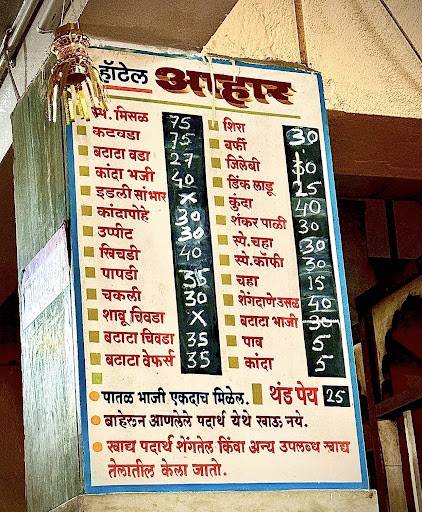 हॉटेल आहार
स्पे. मिसळ 75
कटवडा 75
बटाटा वडा 27
कांदा भजी 40
इडली सांभार X
कांदापोहे 30
उप्पीट 30
खिचडी 40
पापडी 35
चकली 30
शाबू चिवडा X
बटाटा चिवडा 35
बटाटा वेफर्स 35
शिरा 30
बर्फी
जिलेबी 30
डिंक लाडू 25
कुंदा 40
शंकर पाळी 30
स्पे.चहा 30
स्पे.कॉफी 30
चहा 15
शेंगदाणे उसळ 40
बटाटा भाजी 30
पाव 5
कांदा 5
पातळ भाजी एकदाच मिळेल. थंड पेय 25
बाहेरून आणलेले पदार्थ येथे खाऊ नये.
खाद्य पदार्थ शेंगतेल किंवा अन्य उपलब्ध खाद्य
तेलातील केला जातो.